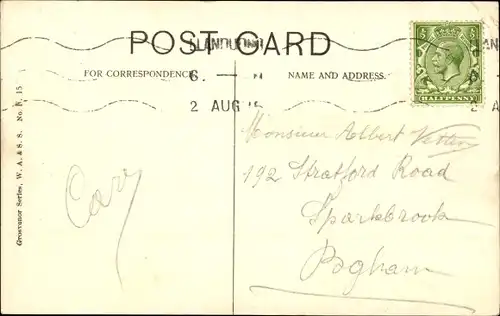 POST CARD
LLANDUDNO
FOR CORRESPONDENCE
6. — M
NAME AND ADDRESS.
2 AUG 15
HALFPENNY
Grosvenor Series, W. A. & S. S. No. R. 15
Monsieur Albert
192 Stratford Road
Sparkbrook
Bgham